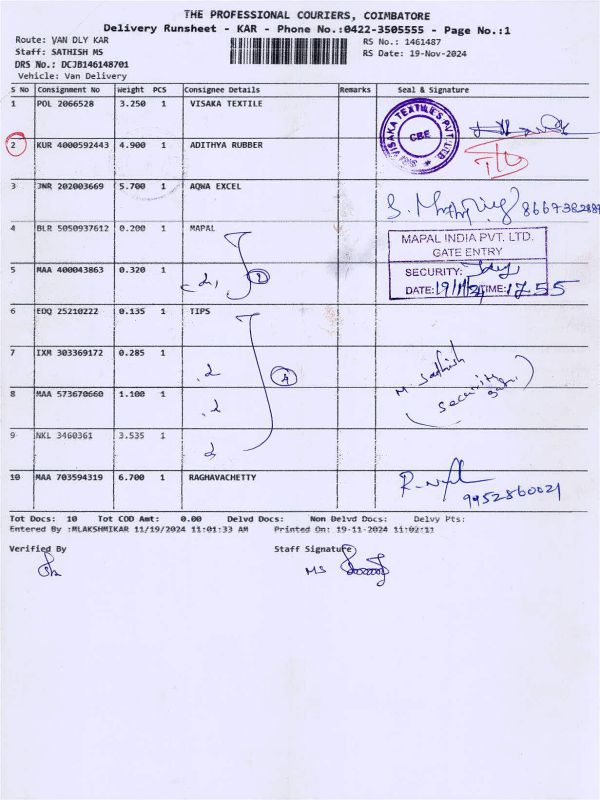 THE PROFESSIONAL COURIERS, COIMBATORE
Delivery Runsheet - KAR - Phone No.:0422-3505555 - Page No.:1
Route: VAN DLY KAR
RS No.: 1461487
Staff: SATHISH MS
RS Date: 19-Nov-2024
DRS No.: DCJB146148701
Vehicle: Van Delivery
S No Consignment No Weight PCS Consignee Details Remarks Seal & Signature
1 POL 2066528 3.250 1 VISAKA TEXTILE
VISAKA TEXTILES PVT LTD.
CBE
2 KUR 4000592443 4.900 1 ADITHYA RUBBER
3 JNR 202003669 5.700 1 AQWA EXCEL
4 BLR 5050937612 0.200 1 MAPAL
MAPAL INDIA PVT. LTD.
GATE ENTRY
5 MAA 400043863 0.320 1
SECURITY:
DATE: 19/11/24 TIME: 17.55
6 EDQ 25210222 0.135 1 TIPS
7 IXM 303369172 0.285 1
4
M. Sathish
8 MAA 573670660 1.100 1
Security
9 NKL 3460361 3.535 1
10 MAA 703594319 6.700 1 RAGHAVACHETTY
9952860021
Tot Docs: 10 Tot COD Amt: 0.00 Delvd Docs: Non Delvd Docs: Delvy Pts:
Entered By :MLAKSHMIKAR 11/19/2024 11:01:33 AM Printed On: 19-11-2024 11:02:11
Verified By Staff Signature
MS